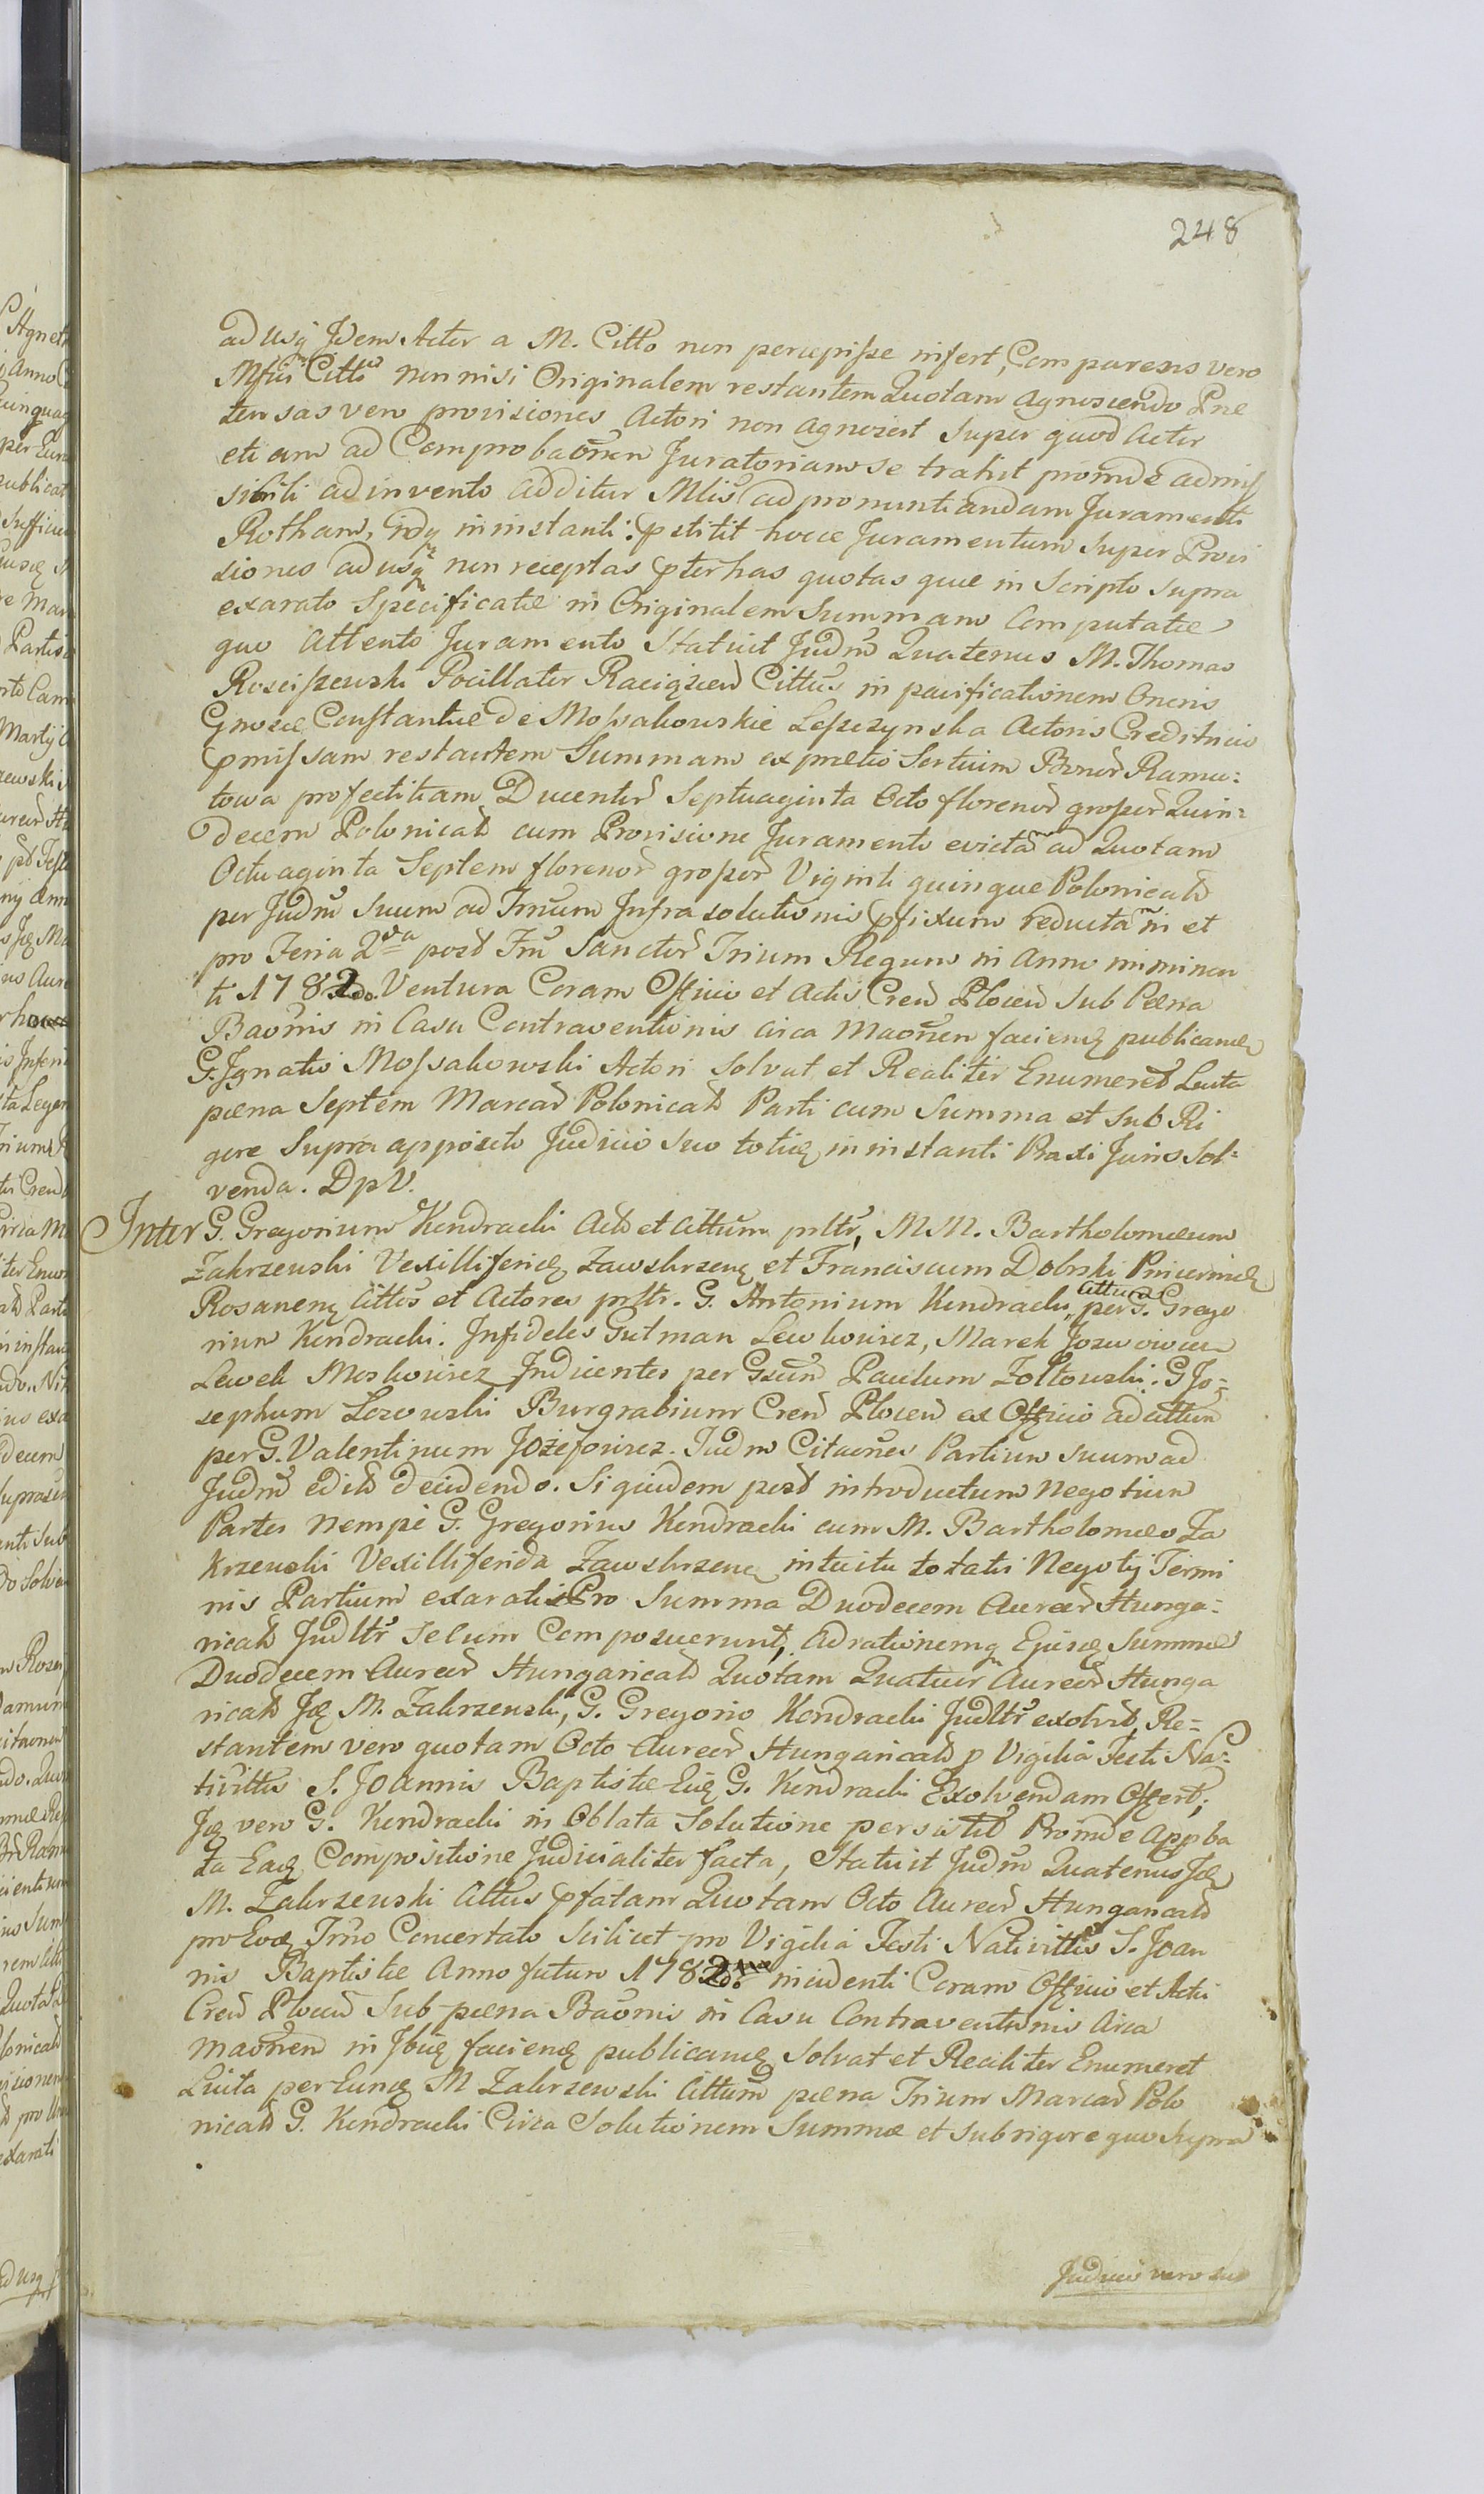 248
ad usq Idem Actor a M. Citto non percepisse infert, Comparens vero
Mfcus Cittus non nisi Originalem restantem Quotam agnoscendo Prae
tensas vero provisiones Actori non agnoscit Super quod Actor
etiam ad Comprobationem Juratoriam se trahit proinde admis
sibili adinvento additur Mlis ad pronuntiandam Juramenti
Rotham, in instanti: pstitit hocce Juramentum super Provi
siones adusq non receptas pter has quotas quae in Scripto supra
exarato Specificatae in Originalem Summam Computatae
quo attento Juramento Statuit Judm Quatenus M. Thomas
Rosciszewski Pocillator Raciązen Cittus in pacificationem Oneris
Gnosae Constantiae de Mossakowskie Leszczynska Actoris Creditricis
pmissam restantem Summam ex praetio Sortium Bonor Ramu:
towa profectitiam Ducentor Septuaginta Octo florenor grosser Quin:
decem Polonicals cum Provisione Juramento evicta ad Quotam
Octuaginta Septem florenor grosser Viginti quinque Polonicals
per Judm suum ad Trnum Infra solutionis pfixum reducta in et
pro Feria 2da post Fm Sanctor Trium Regum in Anno imminen
ti 1782do. Ventura Coram Officio et Actis Cren Plocen sub Paena
Baonis in Casu Contraventionis circa Maonem faciend publicand
G. Ignatio Mossakowski Actori Solvat et Realiter Enumeret Luita
paena Septem Marcar Polonicals Parti cum Summa et sub Ri
gore Supra apposito Judicio suo toties in instanti Baxi Juris Sol:
venda. DpV.
Inter G. Gregorium Kendracki Act et Cittum prltr, MM. Bartholomaeum
Zakrzewski Vexilliferid Zawskrzen et Franciscum Dobrski Pincernid
Rosanen Cittos et Actores prltr. G. Antonium Kendracki, Cittum per G. Grego
rium Kendracki. Infideles Gutman Lewkowicz, Marek Jozwowicz
Lewek Moskowicz Inducentes per Gsum Paulum Zoltowski. G Jo:
sephum Lozowski Burgrabium Cren Plocen ex Officio ad cittum
per G. Valentinum Jozefowicz. Judm Citaones Partium suum ad
Judm edits decidendo. Siquidem post introductum negotium
Partes nempe G. Gregorius Kendracki cum M. Bartholomaeo Za
krzewski Vexilliferida Zawskrzen intuitu totalis Negotij Termi
nis Partium exaratis Pro Summa Duodecem Aureor Hunga:
ricals Judltr Selum Composuerunt, Ad rationemq Ejusd Summae
Duodecem Aureor Hungaricals Quotam Quatuor Aureor Hunga
ricals Id M. Zakrzewski, G. Gregorio Kendracki Judltr exolvit, Re:
stantem vero quotam Octo Aureor Hungaricals p Vigilia Festi Na:
tivittis S. Joannis Baptistae Eid G. Kendracki Exolvendam Offert;
Id vero G. Kendracki in Oblata Solutione persistit Proinde Appba
ta Ead Compositione Judicialiter facta, Statuit Judm Quatenus Id
M. Zakrzewski Cittus pfatam Quotam Octo Aureor Hungaricals
pro Eod Trno Concertato Scilicet pro Vigilia Festi Nativittis S. Joan
nis Baptistae Anno futuro 1782do incidenti Coram Officio et Actis
Cren Plocen Sub paena Baonis in Casu Contraventionis Circa
maonem in Ibid faciend publicand Solvat et Realiter Enumeret
Luita per Eund M Zakrzewski Cittum paena Trium Marcar Polo
nicals G. Kendracki Circa Solutionem Summae et sub rigore quo Supra
Judicio vero suo